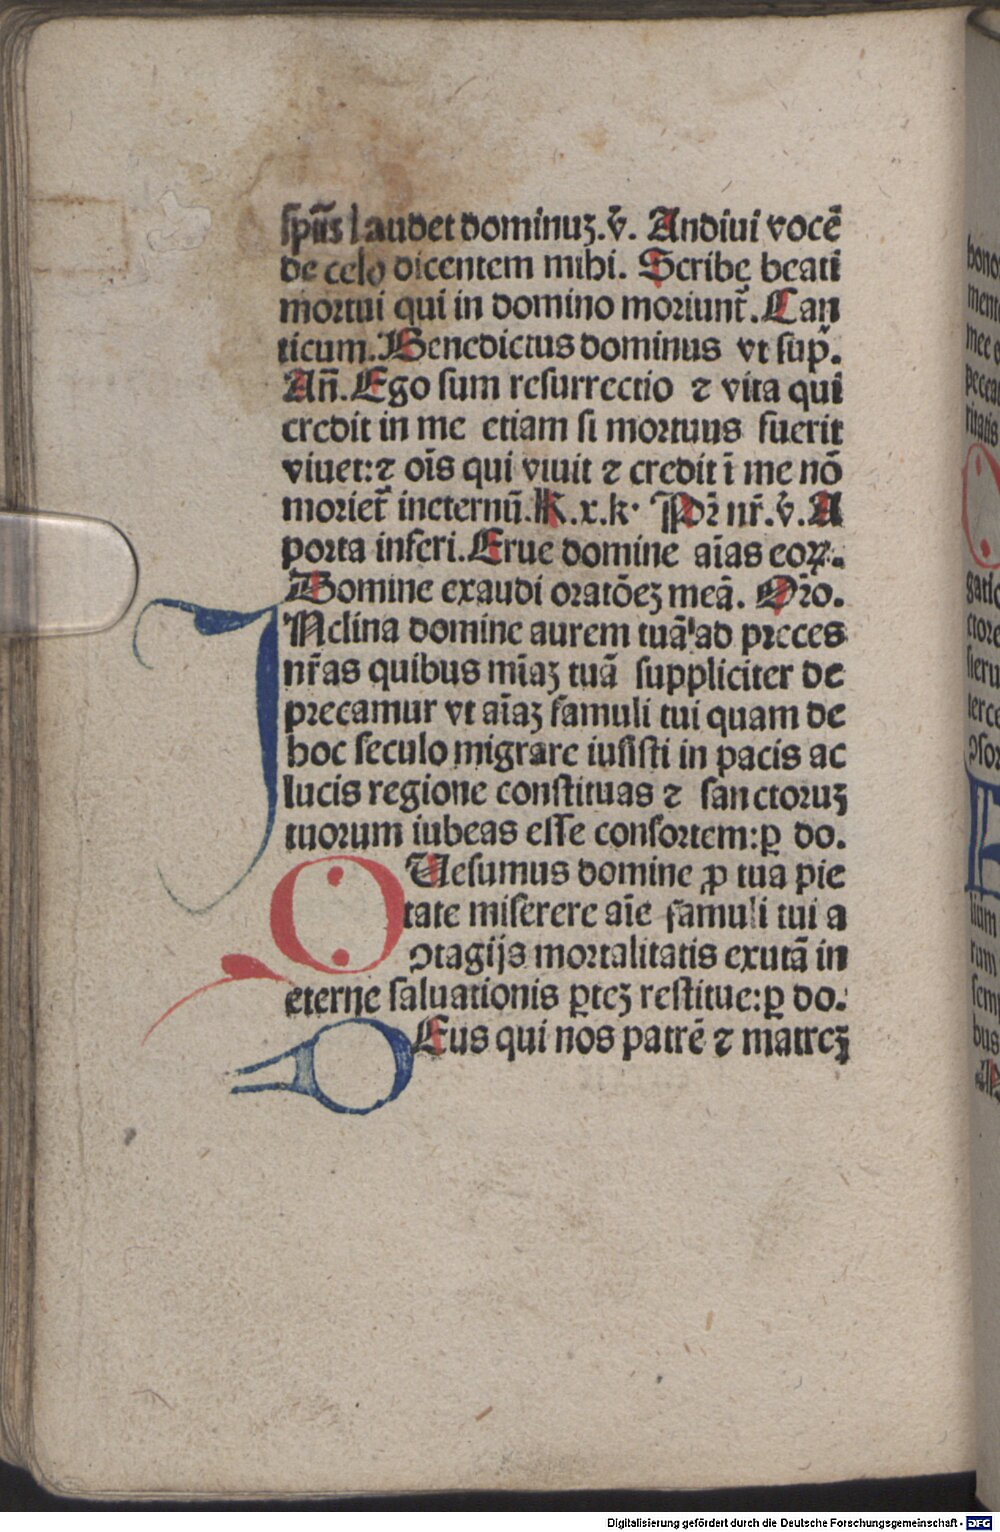 spūs laudet dominuꝫ.v̄. Andiui vocē
de celo dicentem mihi. Scribe beati
mortui qui in domino moriunt᷑. Can
ticum. Benedictus dominus vt sup̄.
Añ. Ego sum resurrectio ⁊ vita qui
credit in me etiam si mortuus fuerit
viuet: ⁊ oīs qui viuit ⁊ credit ī me nō
moriet᷑ ineternū. K.x.k. Pr̄ nr̄.v̄. A
porta inferi. Erue domine aīas eoꝝ.
Domine exaudi oratōeꝫ meā. Or̄o.
INclina domine aurem tuā ad preces
nr̄as quibus mīaꝫ tuā suppliciter de
precamur vt aīaꝫ famuli tui quam de
hoc seculo migrare iussisti in pacis ac
lucis regione constituas ⁊ sanctoruꝫ
tuorum iubeas esse consortem: ꝑ do.
QUesumus domine ꝓ tua pie
tate miserere aīe famuli tui a
ↄtagijs mortalitatis exutā in
eterne saluationis ꝑteꝫ restitue: ꝑ do.
DEus qui nos patrē ⁊ matreꝫ
bono
mee
pecca
ritatis
gatio
ctore
sieru
terce
ↄsor
lium
rum
sem
bus
Digitalisierung gefördert durch die Deutsche Forschungsgemeinschaft - DFG